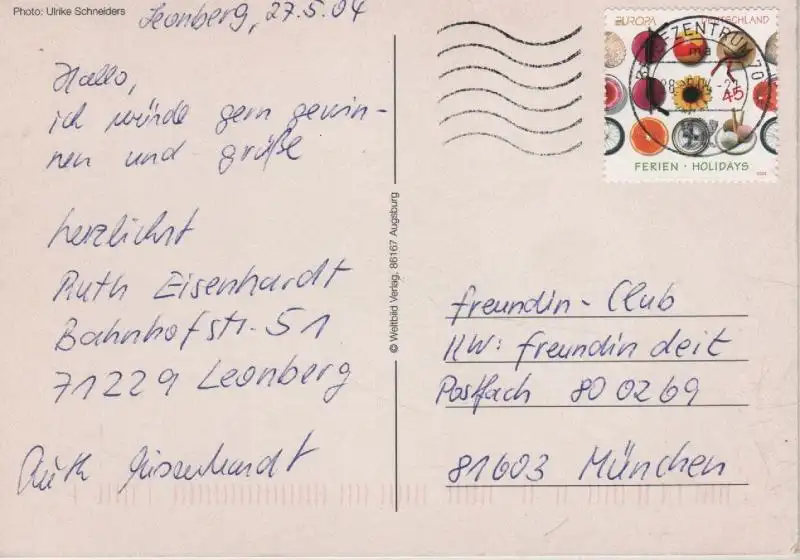 Photo: Ulrike Schneiders
Leonberg, 27.5.04
Hallo,
ich würde gern gewin-
nen und grüße
herzlichst
Ruth Eisenhardt
Bahnhofstr. 51
71229 Leonberg
Ruth Eisenhardt
© Weltbild Verlag, 86167 Augsburg
EUROPA DEUTSCHLAND
BRIEFZENTRUM 70
ma
45
FERIEN · HOLIDAYS
freundin-Club
KW: freundin deit
Postfach 80 02 69
81603 München